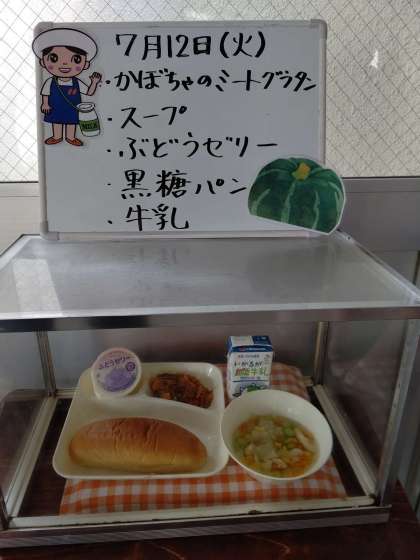 7月12日(火)
・かぼちゃのミートグラタン
・スープ
・ぶどうゼリー
・黒糖パン
・牛乳
MILK
ぶどうゼリー
いかるが
牛乳